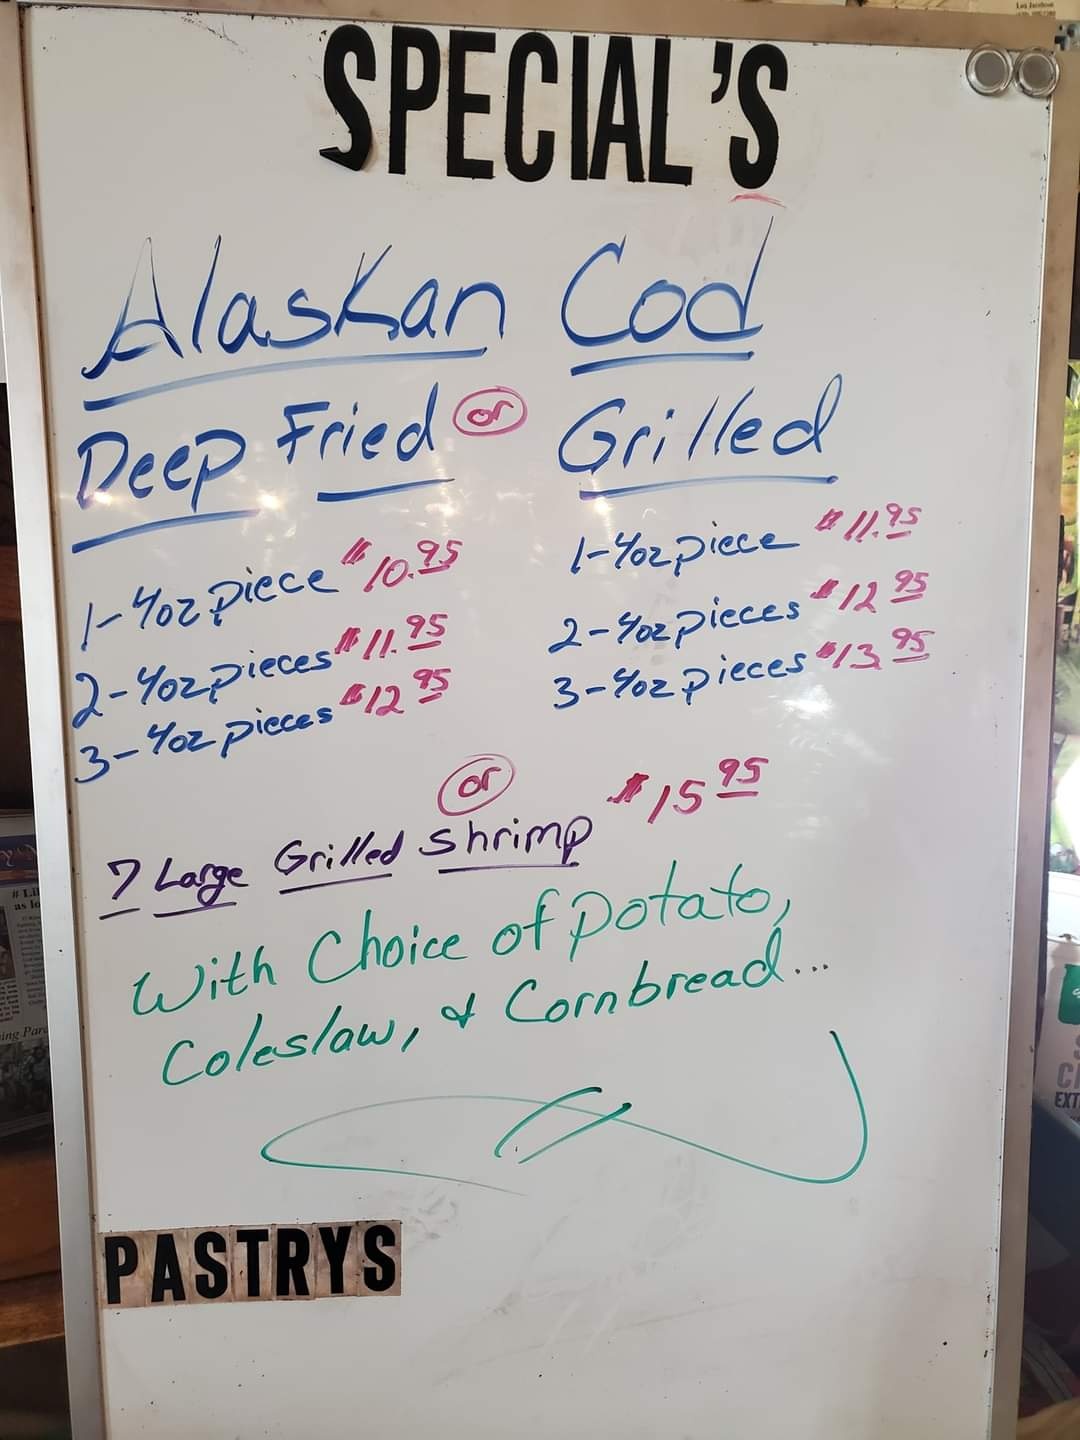 SPECIAL'S
Alaskan Cod
Deep Fried or Grilled
1-4oz piece $10.95
2-4oz pieces $11.95
3-4oz pieces $12 95
1-4oz piece $11.95
2-4oz pieces $12 95
3-4oz pieces $13.95
or
7 Large Grilled Shrimp $15 95
With Choice of potato,
Coleslaw, & Cornbread...
PASTRYS